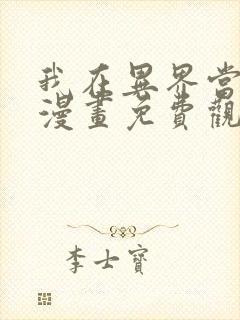 我在異界當
漫畫免費觀
李士寶